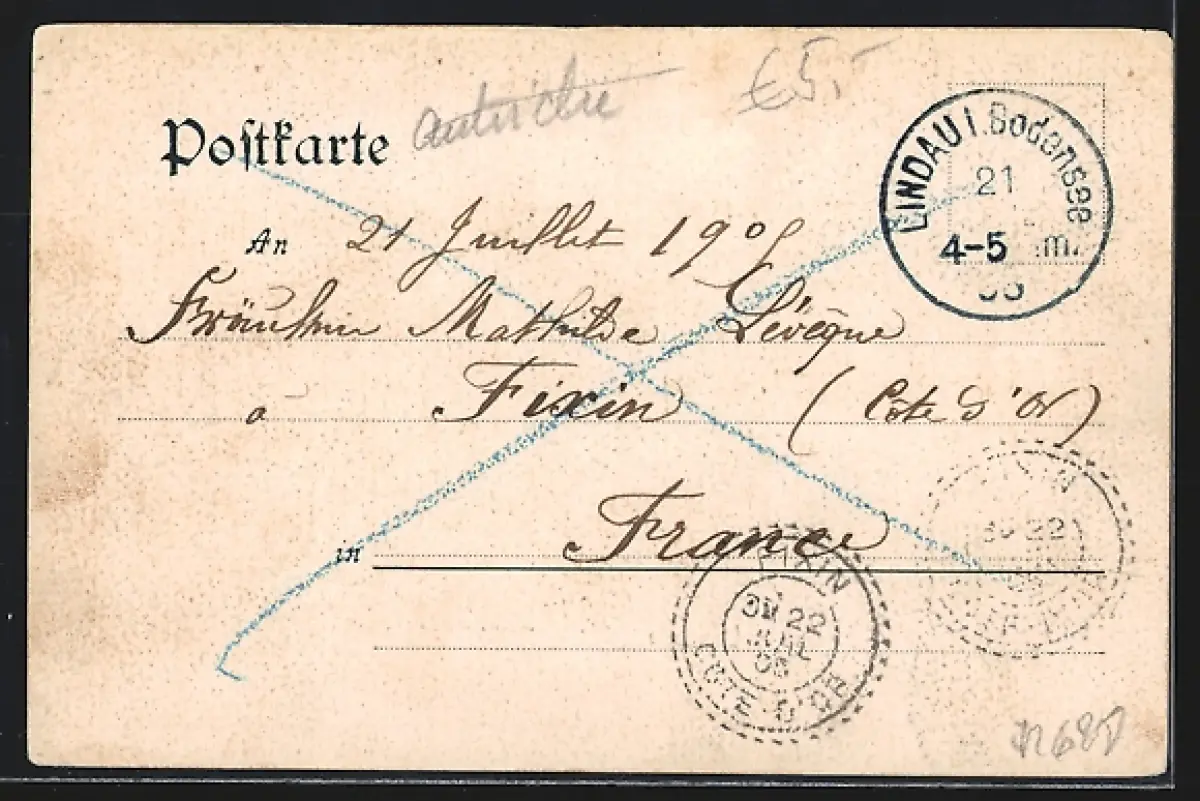 Postkarte
Autriche
€5,-
LINDAU i. Bodensee
21
4-5 m.
05
An
21 Juillet 1905
Fräulein Mathilde Lévêque
à Fixin (Cote d'Or)
in
France
FIXIN
22
JUIL
05
COTE D'OR
22